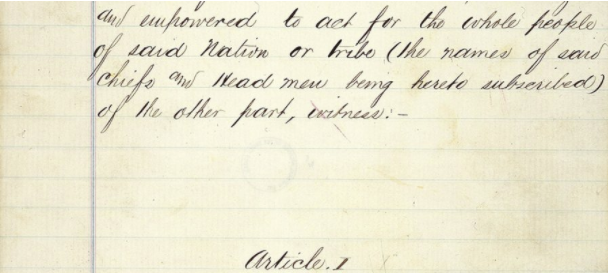 and empowered to act for the whole people
of said Nation or tribe (the names of said
chiefs and Head men being hereto subscribed)
of the other part, witness:-
Article. 1